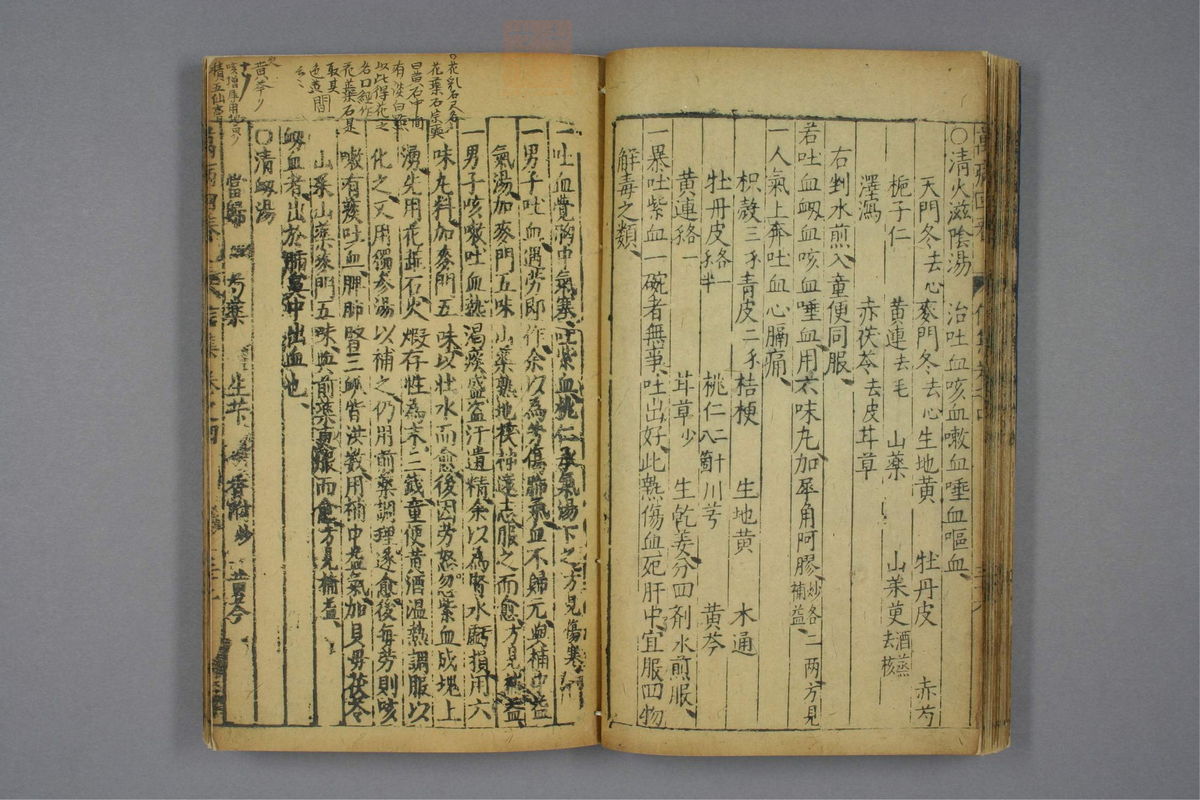 ○清火滋陰湯 治吐血咳血嗽血唾血嘔血
天門冬去心 麥門冬去心 生地黃 牡丹皮 赤芍
梔子仁 黃連去毛 山藥 山茱萸酒蒸去核
澤瀉 赤茯苓去皮 茸草
右剉水煎入童便同服
若吐血衂血咳血唾血用六味丸加犀角阿膠炒各二兩方見補益
一人氣上奔吐血心膈痛
枳殼三 青皮二 桔梗 生地黃 木通
牡丹皮 桃仁二十八箇 川芎 黃芩
黃連 茸草少 生乾姜分四剤水煎服
一暴吐紫血一碗者無事吐出好此熱傷血死肝中宜服四物
解毒之類
一吐血覺胸中氣塞吐紫血桃仁承氣湯下之方見傷寒
一男子吐血遇劳即作余以為劳傷肺氣血不歸元與補中益
氣湯加麥門五味山藥熟地茯神遠志服之而愈方見補益
一男子咳嗽吐血熱渴痰盛盗汗遺精余以為腎水虧損用六
味丸料加麥門五味以壯水而愈後因劳怒忽紫血成塊上
湧先用花蕊石火煅存性為末三錢童便黃酒温熱調服以
化之又用獨參湯以補之仍用前藥調理遂愈後每劳則咳
嗽有痰吐血脾肺腎三脉皆洪數用補中益氣加貝母茯苓
山茱山藥麥門五味與前藥兼服而愈方見補益
衂血者出於肺鼻中出血也
○清衂湯
當歸 芍藥 生芐 香附炒 黃芩
○花乳石又名
花蕊石宗奭
曰黃石中間
有淡白點
以此得花之
名口經作
花蕊石是
取其
色黃